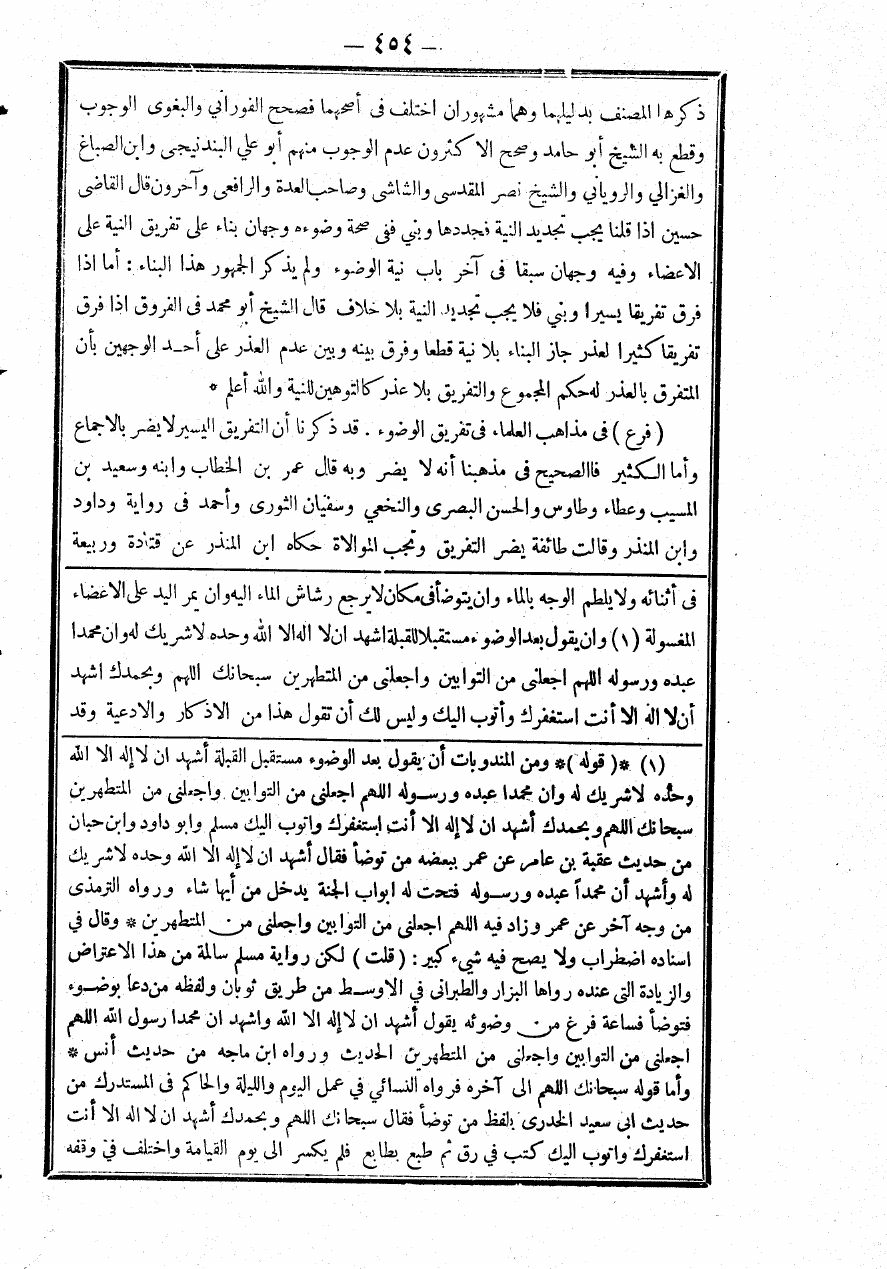 — ٤٥٤ —
ذكرها المصنف بدليليهما وهما مشهوران اختلف فى أصحهما فصحح الفوراني والبغوى الوجوب
وقطع به الشيخ أبو حامد وصحح الاكثرون عدم الوجوب منهم أبو علي البندنيجى وابن الصباغ
والغزالي والروياني والشيخ نصر المقدسى والشاشى وصاحب العدة والرافعى وآخرون قال القاضى
حسين اذا قلنا يجب تجديد النية فجددها وبني ففى صحة وضوءه وجهان بناء على تفريق النية على
الاعضاء وفيه وجهان سبقا فى آخر باب نية الوضوء ولم يذكر الجمهور هذا البناء : أما اذا
فرق تفريقا يسيرا وبني فلا يجب تجديد النية بلا خلاف قال الشيخ أبو محمد فى الفروق اذا فرق
تفريقا كثيرا لعذر جاز البناء بلا نية قطعا وفرق بينه وبين عدم العذر على أحد الوجهين بأن
المتفرق بالعذر له حكم المجموع والتفريق بلا عذر كالتوهين للنية والله أعلم *
( فرع ) فى مذاهب العلماء فى تفريق الوضوء . قد ذكرنا أن التفريق اليسير لا يضر بالاجماع
وأما الكثير فالصحيح فى مذهبنا أنه لا يضر وبه قال عمر بن الخطاب وابنه وسعيد بن
المسيب وعطاء وطاوس والحسن البصرى والنخعي وسفيان الثورى وأحمد فى رواية وداود
وابن المنذر وقالت طائفة يضر التفريق وتجب الموالاة حكاه ابن المنذر عن قتادة وربيعة
فى أثنائه ولا يلطم الوجه بالماء وان يتوضأ فى مكان لا يرجع رشاش الماء اليه وان يمر اليد على الاعضاء
المغسولة (١) وان يقول بعد الوضوء مستقبلا للقبلة اشهد ان لا اله الا الله وحده لا شريك له وان محمدا
عبده ورسوله اللهم اجعلنى من التوابين واجعلنى من المتطهرين سبحانك اللهم وبحمدك اشهد
أن لا اله الا أنت استغفرك وأتوب اليك وليس لك أن تقول هذا من الاذكار والادعية وقد
(١) *( قوله )* ومن المندوبات أن يقول بعد الوضوء مستقبل القبلة أشهد ان لا إله الا الله
وحده لا شريك له وان محمدا عبده ورسوله اللهم اجعلني من التوابين واجعلنى من المتطهرين
سبحانك اللهم وبحمدك أشهد ان لا إله الا أنت استغفرك واتوب اليك مسلم وابو داود وابن حبان
من حديث عقبة بن عامر عن عمر ببعضه من توضأ فقال أشهد ان لا إله الا الله وحده لا شريك
له وأشهد أن محمداً عبده ورسوله فتحت له ابواب الجنة يدخل من أيها شاء ورواه الترمذى
من وجه آخر عن عمر وزاد فيه اللهم اجعلنى من التوابين واجعلنى من المتطهرين * وقال في
اسناده اضطراب ولا يصح فيه شيء كبير : ( قلت ) لكن رواية مسلم سالمة من هذا الاعتراض
والزيادة التى عنده رواها البزار والطبرانى في الاوسط من طريق ثوبان ولفظه من دعا بوضوء
فتوضأ فساعة فرغ من وضوئه يقول أشهد ان لا إله الا الله واشهد ان محمدا رسول الله اللهم
اجعلنى من التوابين واجعلنى من المتطهرين الحديث ورواه ابن ماجه من حديث أنس *
وأما قوله سبحانك اللهم الى آخره فرواه النسائي في عمل اليوم والليلة والحاكم فى المستدرك من
حديث ابى سعيد الخدرى بلفظ من توضأ فقال سبحانك اللهم وبحمدك أشهد ان لا اله الا أنت
استغفرك واتوب اليك كتب في رق ثم طبع بطابع فلم يكسر الى يوم القيامة واختلف في وقفه